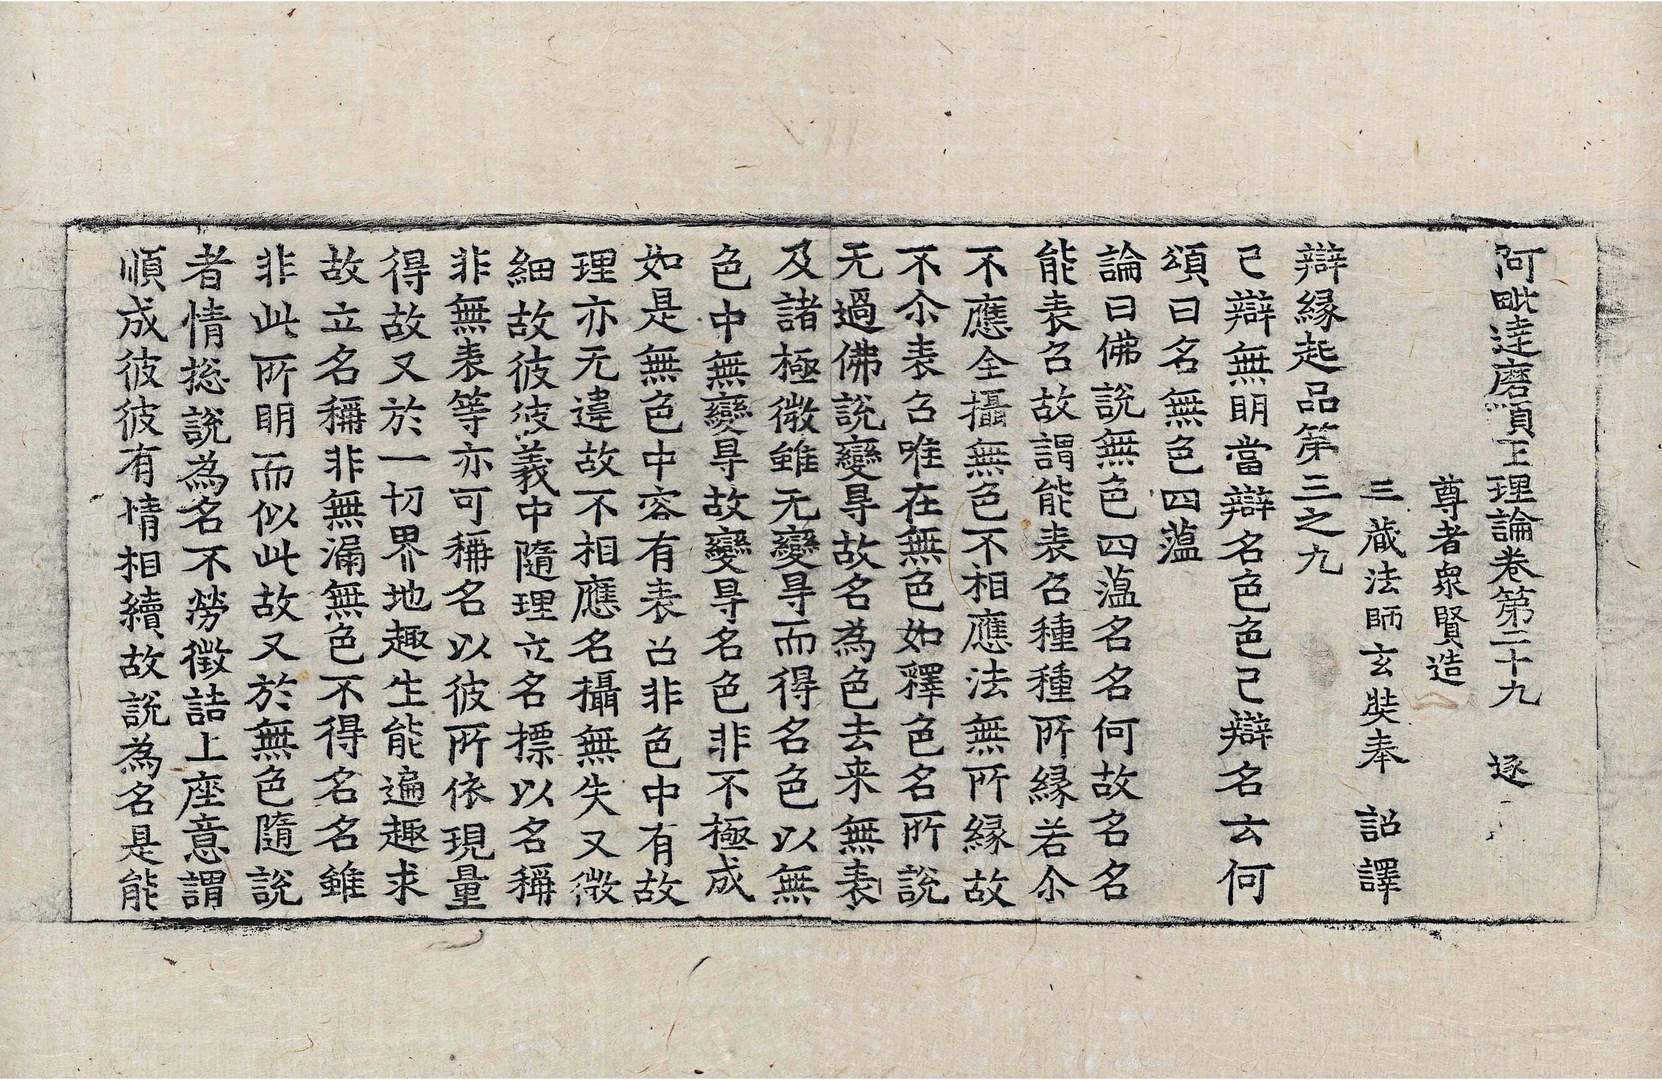 阿毗達磨順正理論卷第二十九 逐
尊者衆賢造
三藏法師玄奘奉 詔譯
辯緣起品第三之九
已辯無明當辯名色色已辯名云何
頌曰名無色四蘊
論曰佛說無色四蘊名名何故名名
能表召故謂能表召種種所緣若尒
不應全攝無色不相應法無所緣故
不尒表召唯在無色如釋色名所說
无過佛說變㝵故名為色去来無表
及諸極微雖无變㝵而得名色以無
色中無變㝵故變㝵名色非不極成
如是無色中容有表召非色中有故
理亦无違故不相應名攝無失又微
細故彼彼義中隨理立名摽以名稱
非無表等亦可稱名以彼所依現量
得故又於一切界地趣生能遍趣求
故立名稱非無漏無色不得名名雖
非此所明而似此故又於無色隨說
者情揔說為名不勞徵詰上座意謂
順成彼彼有情相續故說為名是能